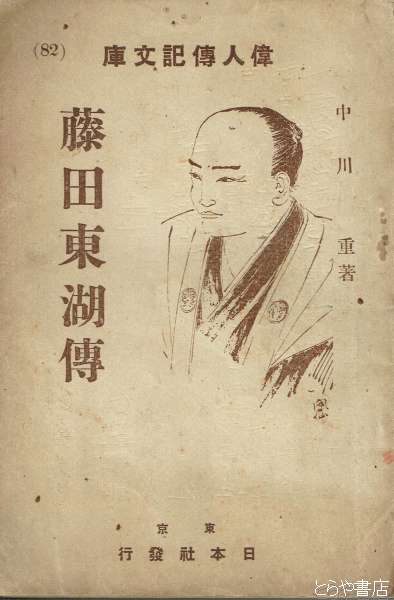 (82)
偉人傳記文庫
中川重著
藤田東湖傳
東京
日本社發行
とらや書店